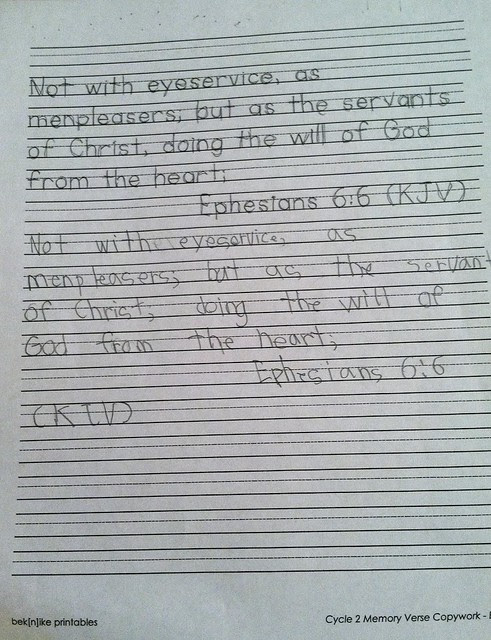 Not with eyeservice, as
menpleasers; but as the servants
of Christ, doing the will of God
from the heart;
Ephesians 6:6 (KJV)
Not with eyeservice, as
menpleasers; but as the servant
of Christ, doing the will of
God from the heart;
Ephesians 6:6
(KJV)
bek[n]ike printables
Cycle 2 Memory Verse Copywork -